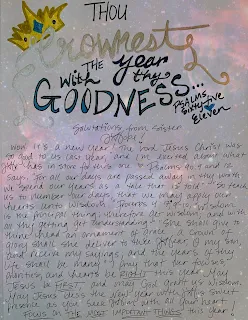 THOU
Crownest
THE year
with thy
GOODNESS...
PSALMS
Sixty Five
Eleven
Salutations from Sister
WOW it's a new year! The Lord Jesus Christ was
so good to us last year, and I'm excited about what
has in store for us in Psalms 90:9 and 12
says, For all our days are passed away in thy wrath
we spend our years as a tale that is told. So teach
us to number our days, that we may apply our
hearts unto wisdom. Proverbs 4:7 Wisdom
is the principal thing; therefore get wisdom; and with
all thy getting get understanding. She shall give to
thine head an ornament of grace: a crown of
glory shall she deliver to thee. Hear, O my son,
and receive my sayings; and the years of thy
life shall be many. I pray that
and hearts be RIGHT this year. May
Jesus be FIRST, and may God grant us wisdom.
May Jesus bless the New Year with
as you serve Him with all your heart.
Focus on THE MOST IMPORTANT THINGS this year